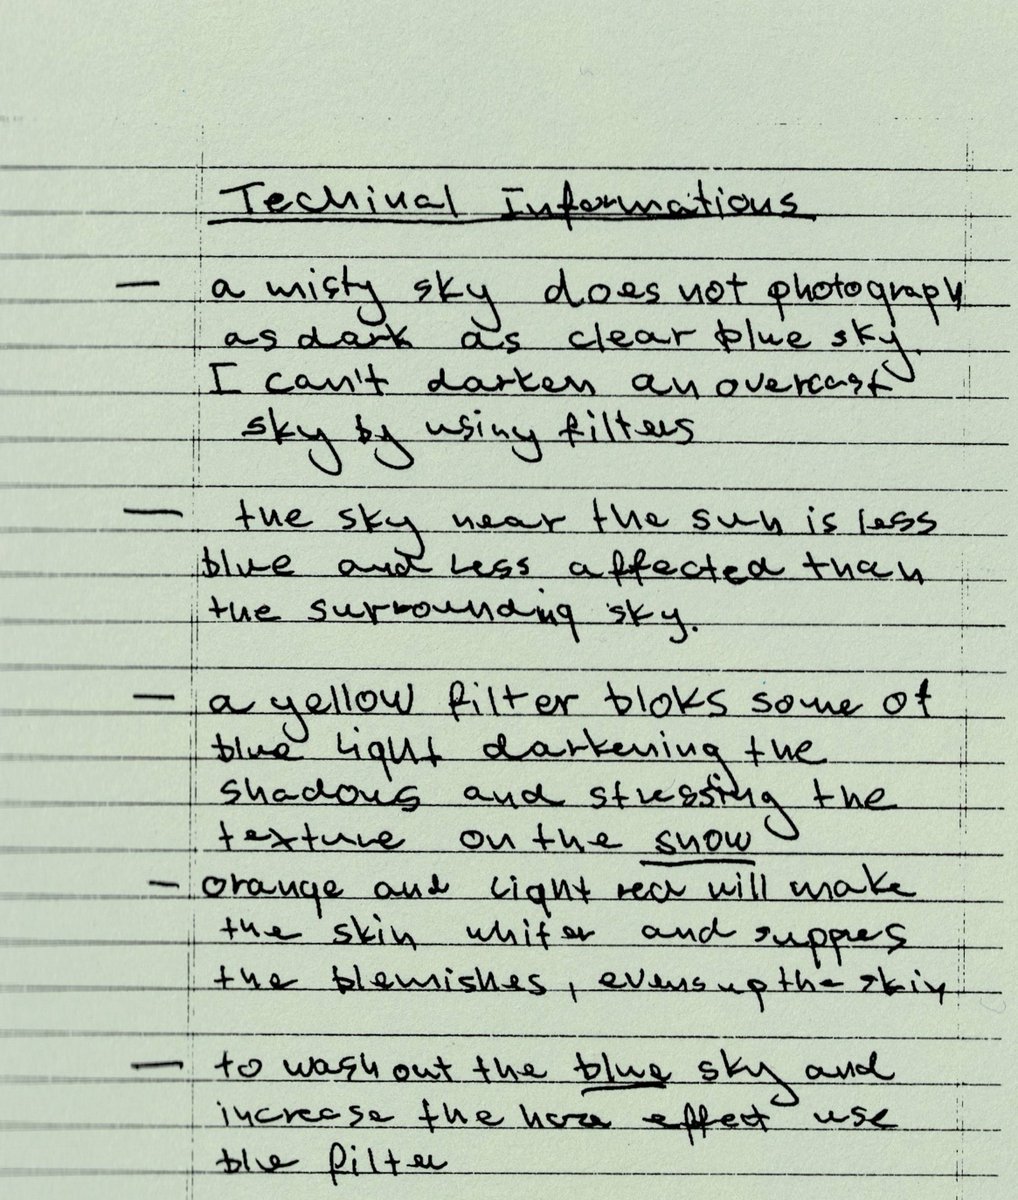 Techinal Informations
— a misty sky does not photograph
as dark as clear blue sky.
I can't darken an overcast
sky by using filters
— the sky near the sun is less
blue and less affected than
the surrounding sky.
— a yellow filter bloks some of
blue light darkening the
shadous and stressing the
texture on the snow
— orange and light red will make
the skin whiter and suppres
the blemishes, evens up the skin
— to wash out the blue sky and
increase the haze effect use
blue filter